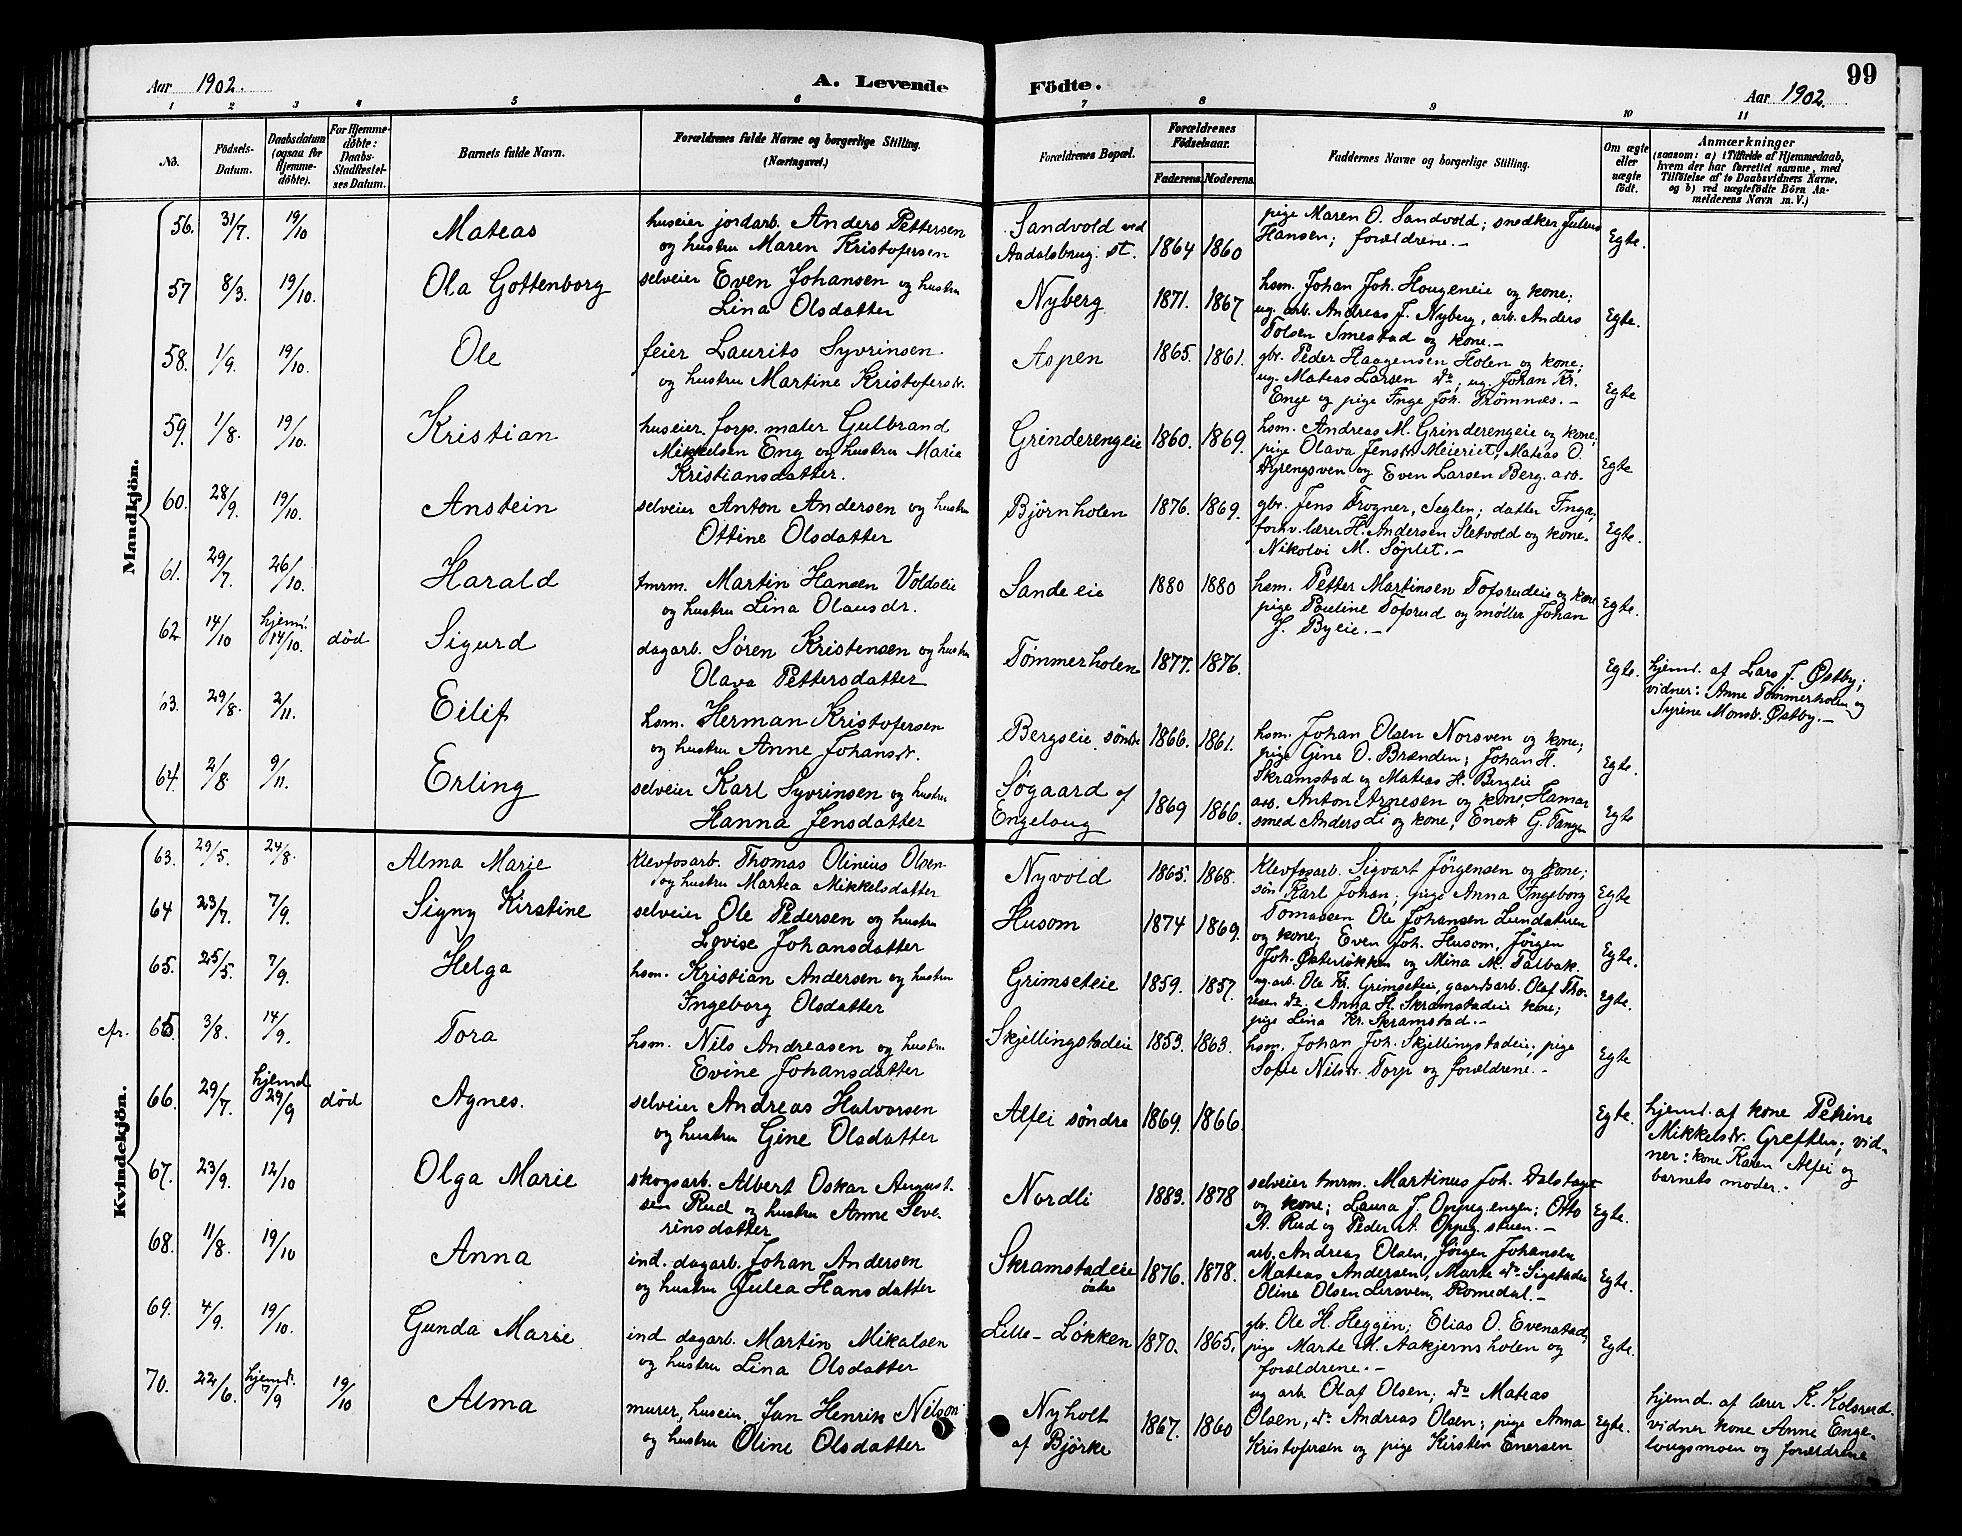 Aar 1902. A. Levende Födte. Aar 1902. 99
1 2 3 4 5 6 7 8 9 10 11
No. Födsels-Datum. Daabsdatum (ogsaa for Hjemmedöbte). For Hjemmedöbte: Daabs-Stadfæstelses Datum. Barnets fulde Navn. Forældrenes fulde Navne og borgerlige Stilling. (Næringsvei.) Forældrenes Bopæl. Forældrenes Födselsaar. Faderens. Moderens. Faddernes Navne og borgerlige Stilling. Om ægte eller uægte födt. Anmærkninger (saasom: a) i Tilfælde af Hjemmedaab, hvem der har forrettet samme, med Tilföielse af to Daabsvidners Navne, og b) ved uægtefödte Börn Anmelderens Navn m. V.)
Mandkjön.
56. 31/7. 19/10 Mateas huseier jordarb. Anders Pettersen
og hustru Maren Kristofersen
Sandvold ved
Aadalsbrug. st. 1864 1860
pige Maren O. Sandvold; snedker Julius
Hansen; forældrene.- Egte.
57 8/3. 19/10. Ola Gottenborg selveier Even Johansen og hustru
Lina Olsdatter
Nyberg 1871. 1867
hsm. Johan Joh. Hougeneie og kone;
ug. arb. Andreas J. Nyberg, arb. Anders
Tolsen Smestad og kone.- Egte.
58. 1/9. 19/10. Ole feier Laurits Syvrinsen
og hustru Martine Kristofersdr.
Aspen 1865. 1861.
gbr. Peder Haagensen Holen og kone;
ug. Mateas Larsen do; ug. Johan Kr.
Enge og pige Inge Joh. Trömnæs.- Egte
59. 1/8. 19/10. Kristian huseier. forp. maler Gulbrand
Mikkelsen Eng og hustru Maria
Kristiansdatter.
Grinderengeie 1860. 1869.
hsm. Andreas M. Grinderengeie og kone;
pige Olava Jensdr Meieriet, Mateas O.
Dyrengsven og Even Larsen Berg. arb. Egte
60. 28/9. 19/10. Anstein selveier Anton Andersen og hustru
Ottine Olsdatter
Björnholen 1876. 1869.
gbr. Jens Trogner, Seglen; datter Inga;
forhv. lærer H. Andersen Sletvold og kone.
Nikolvi M. Söplet.- Egte.
61. 29/7. 26/10. Harald tmrm. Martin Hansen Voldseie
og hustru Lina Olausdr.
Sandeeie 1880 1880
hsm. Petter Martinsen Tofsrudeie og kone
pige Pauline Tofsrud og møller Johan
J. Byeie.- Egte.
62 14/10 hjemd. 14/10. död Sigurd dagarb. Søren Kristensen og hustru
Olava Pettersdatter
Tömmerholen 1877. 1876. Egte.
hjemd. af Lars J. Østby;
vidner: Anne Tömmerholen og
Syrine Monsdr. Østby.-
63. 29/8. 2/11. Eilif hsm. Herman Kristofersen
og hustru Anne Johansdr.
Bergseie söndre 1866. 1861.
hsm. Johan Olsen Norsven og kone;
pige Gine O. Brænden; Johan H.
Skramstad og Mateas H. Bergeie Egte.
64. 2/8. 9/11. Erling selveier Karl Syvrinsen og hustru
Hanna Jensdatter
Søgaard af
Engeloug 1869 1866.
arb. Anton Arnesen og kone, Hamar
smed Anders Li og kone; Enok G. Tangen Egte
Kvindekjön.
63. 29/5. 24/8. Alma Marie Klevfosarb. Thomas Olinius Olsen
og hustru Martea Mikkelsdatter
Nyvold 1865. 1868.
Klevfosarb. Sigvart Jörgensen og kone;
søn Karl Johan; pige Anna Ingeborg
Tomassen Egte
64 23/7. 7/9. Signy Kirstine selveier Ole Pedersen og hustru
Lovise Johansdatter
Husom 1874 1869.
Ole Johansen Lundstuen
og kone; Even Joh. Husom, Jörgen
Joh. Østerlökken og Mina M. Talbak. Egte.
65. 25/5. 7/9. Helga hsm. Kristian Andersen og hustru
Ingeborg Olsdatter
Grimseteie 1859. 1857.
ug. arb. Ole Kr. Grimseteie, gaardsarb. Olaf Tho-
resen do. Anna H. Skramstadeie kone;
pige Lina Kr. Skramstad.- Egte.
65. 3/8. 14/9. Tora hsm. Nils Andreasen og hustru
Evine Johansdatter
Skjellingstadeie 1853. 1863.
hsm. Johan Joh. Skjellingstadeie, pige
Sofie Nilsdr. Torp og forældrene.- Egte
66. 29/7. hjemd 29/9 död Agnes. selveier Andreas Halvorsen
og hustru Gine Olsdatter
Alfei söndre 1869. 1866. Egte.
hjemd. af kone Petrine
Mikkelsdr. Greftlien; vid-
ner: kone Karen Alfei og
barnets moder.-
67. 23/9. 12/10 Olga Marie skogsarb. Albert Oskar August-
sen Rud og hustru Anne Seve-
rinsdatter
Nordli 1883. 1878
selveier tmrm. Martinus Joh. Dalstaget
og kone; Laura J. Oppeg.engen; Otto
A. Rud og Peder A. Oppeg.stuen.- Egte.
68. 11/8. 19/10 Anna ind. dagarb. Johan Andersen
og hustru Julea Hansdatter
Skramstadeie
östre 1876. 1878.
arb. Andreas Olsen, Jørgen Johansen
Mateas Andersen, Marte do Sigstadeie
Oline Olsen Lersven, Romedal.- Egte.
69. 4/9. 19/10. Gunda Marie ind dagarb. Martin Mikalsen
og hustru Lina Olsdatter
Lille-Løkken 1870. 1865.
gbr. Ole H. Heggin; Elias O. Evenstad,
pige Marte M. Aakjernsholen og
forældrene.- Egte.
70. 22/6. hjemd. 7/9 19/10 Alma murer, huseier, Jan Henrik Nilson
og hustru Oline Olsdatter
Nyholt
af Björke 1867. 1860
ug arb. Olaf Olsen; do Mateas
Olsen, do Andreas Olsen; pige Anna
Kristofersen og pige Kirsten Enersen Egte.
hjemd. af lærer K. Kolsrud.
vidner kone Anne Enge-
lougsmoen og forældrene